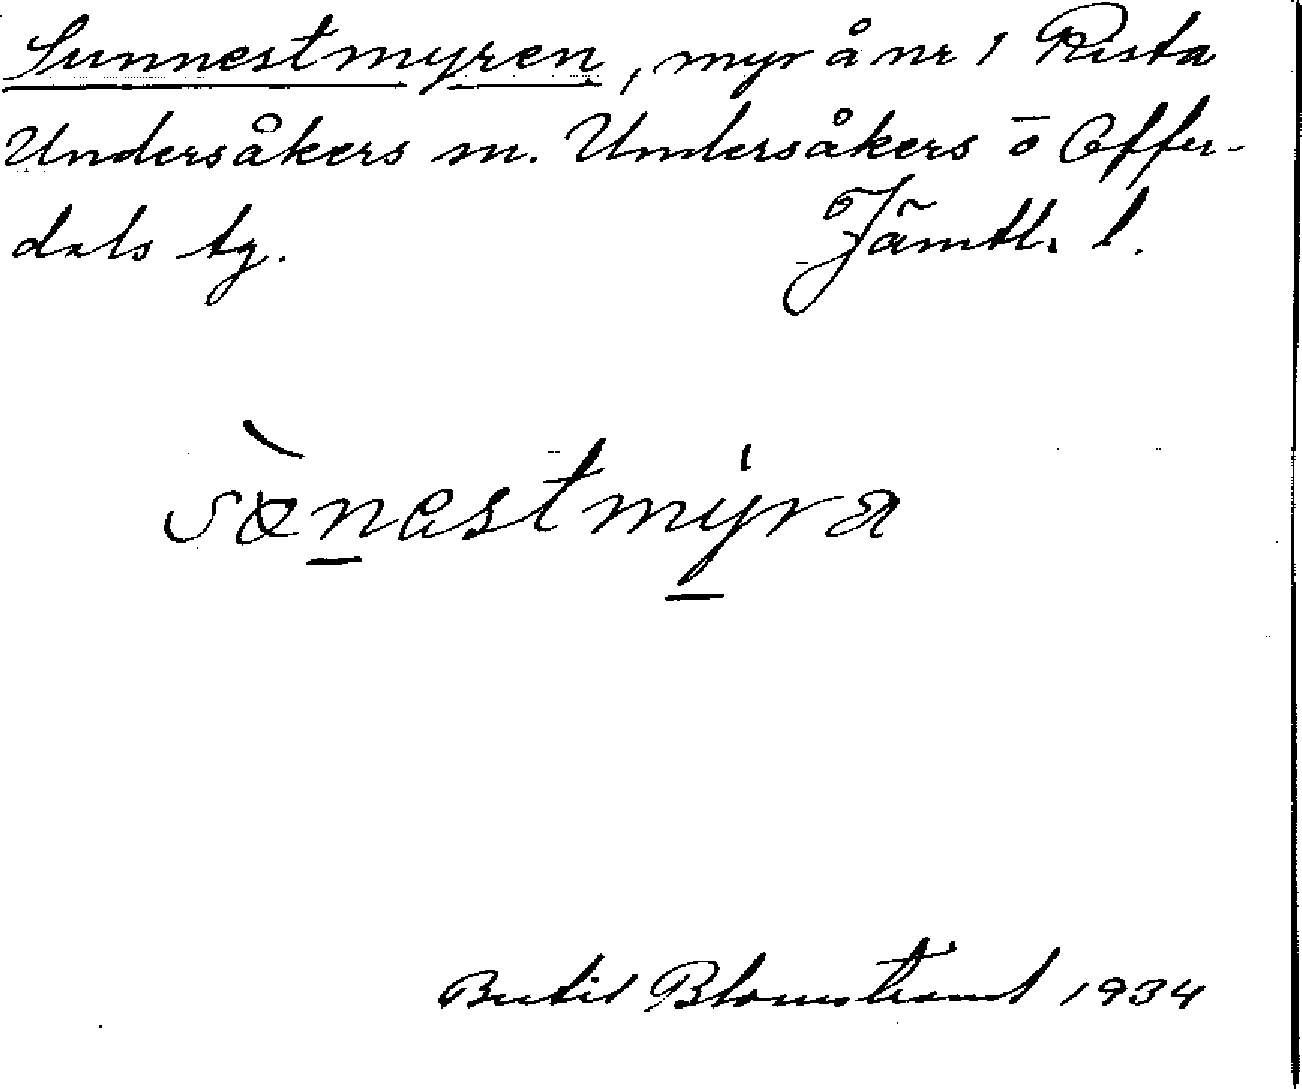 Sunnestmyren, myr å nr 1 Rista
Undersåkers sn. Undersåkers o Offer-
dals tg. Jämtl. l.
sœ̀nestmy̍ra
Bertil Blomstrand 1934